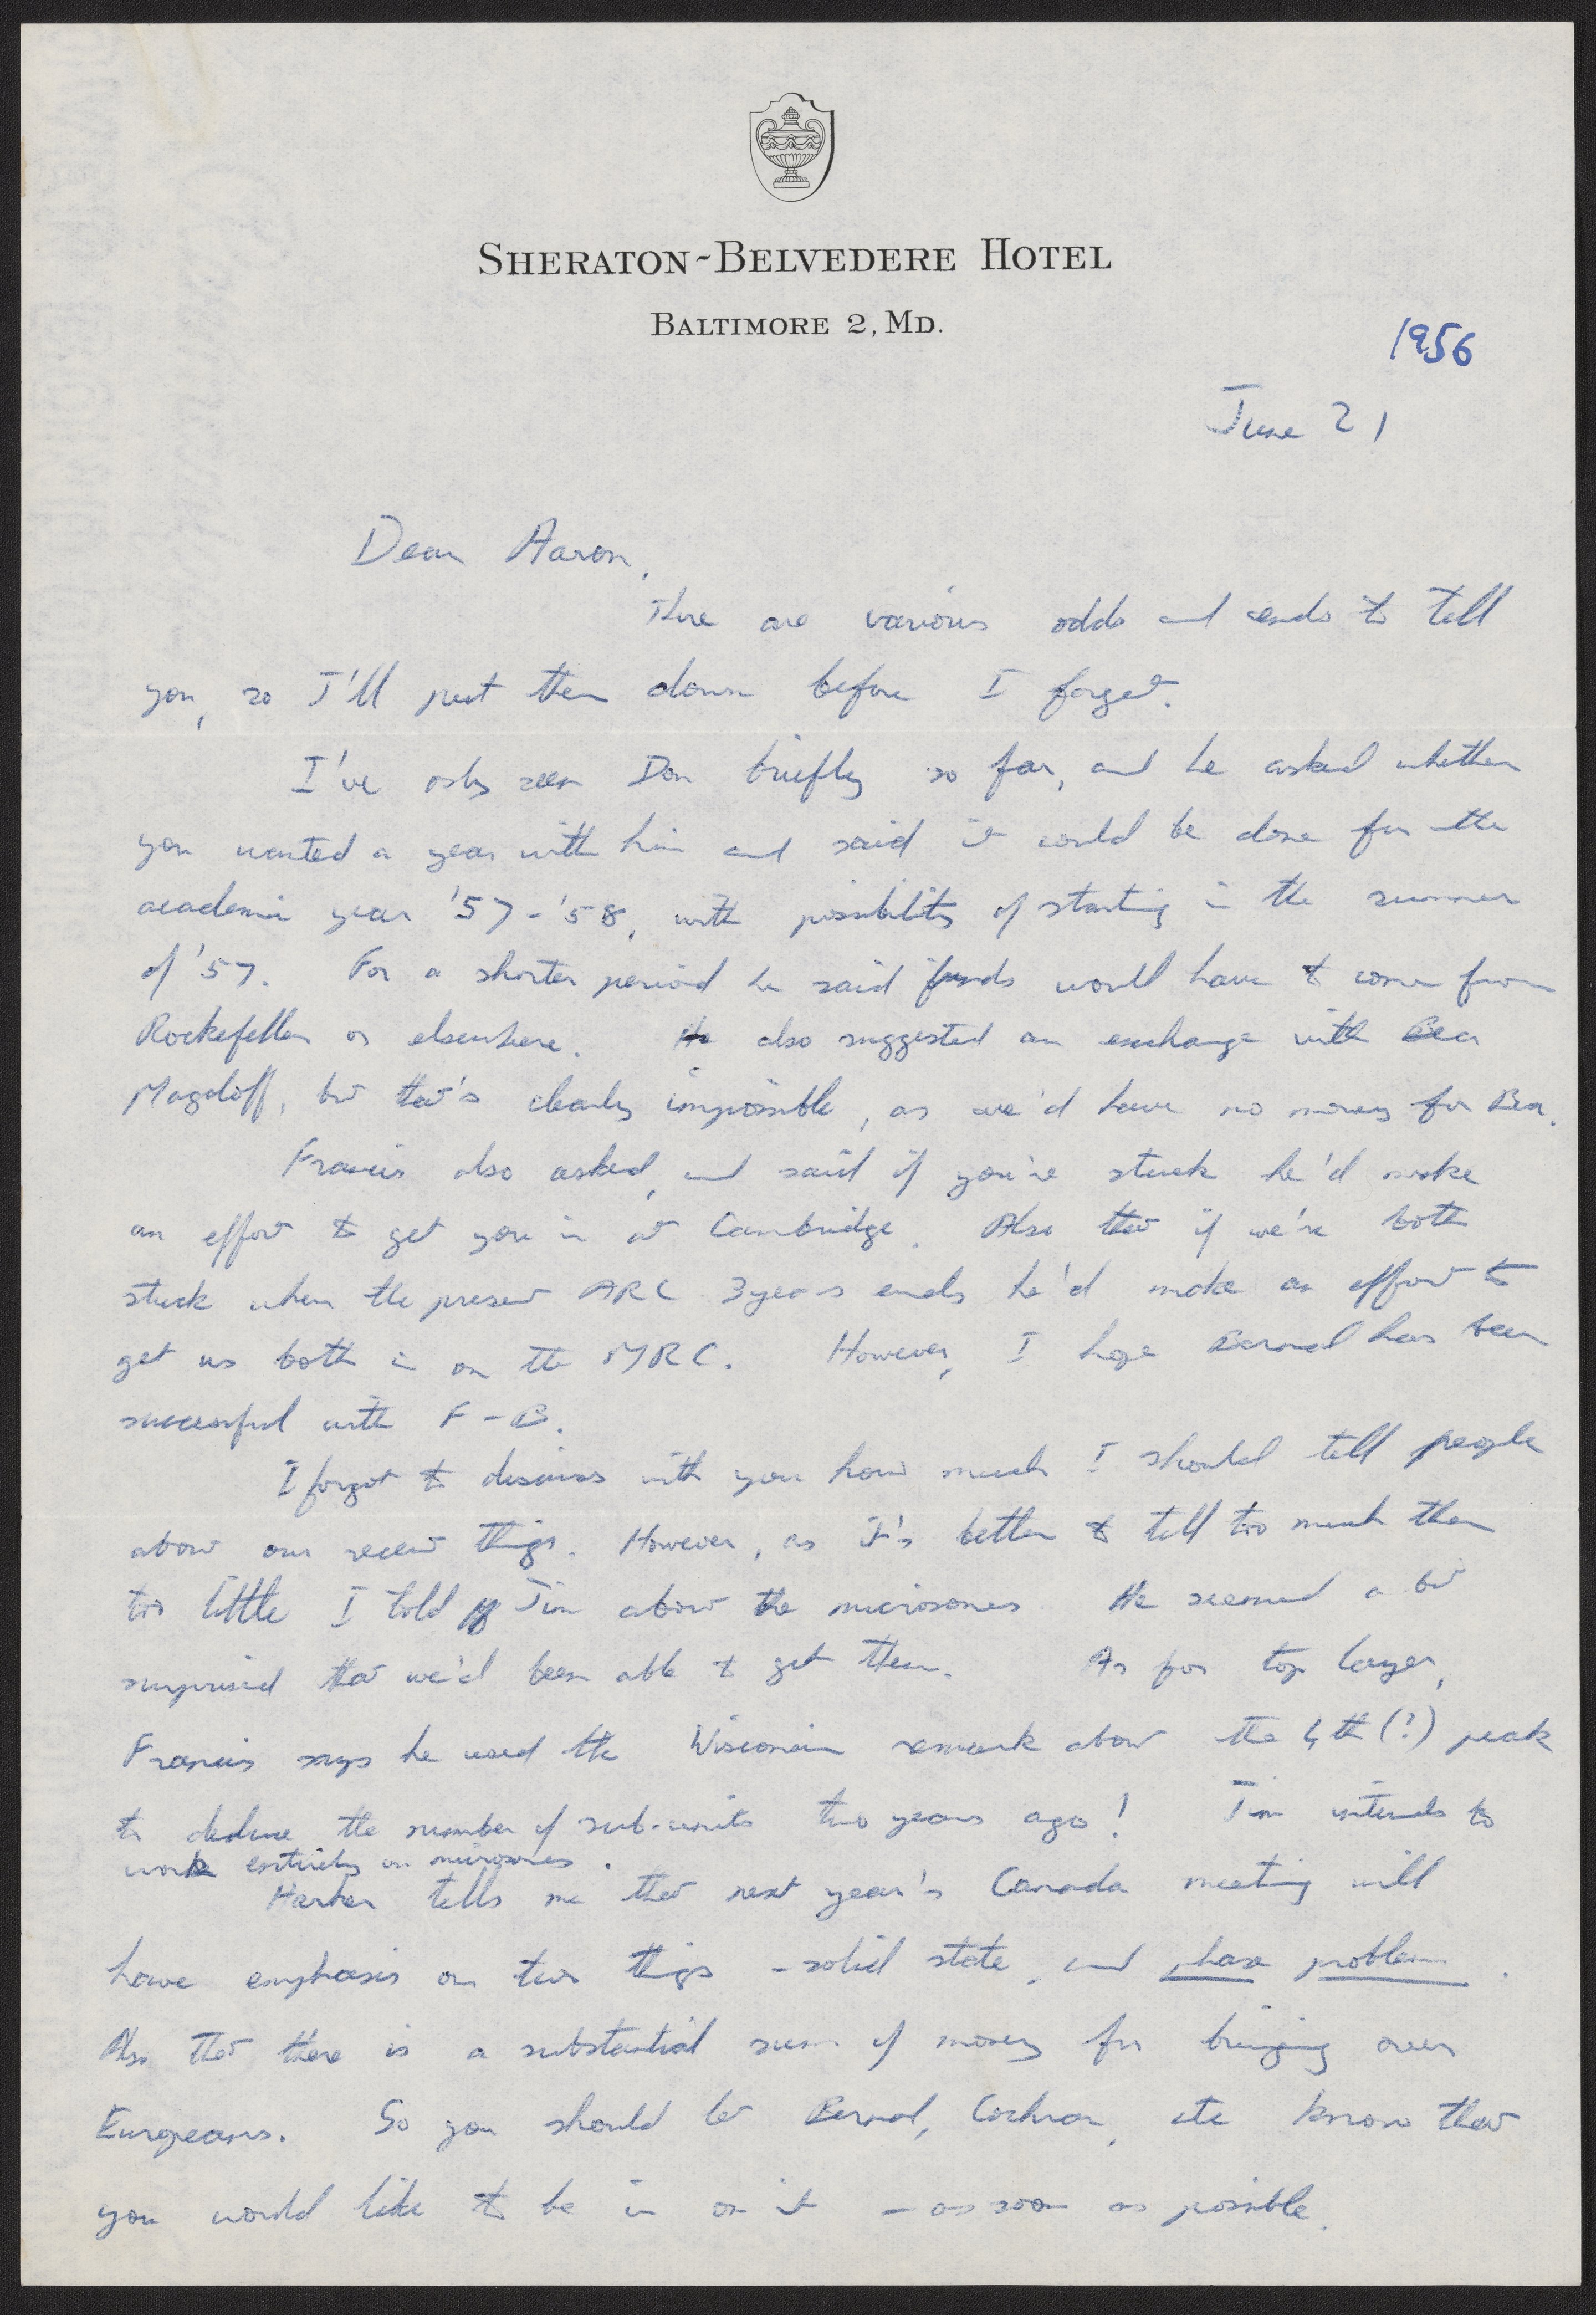 SHERATON-BELVEDERE HOTEL
BALTIMORE 2, MD.
1956
June 21
Dear Aaron,
There are various odds and ends to tell
you, so I'll put them down before I forget.
I've only seen Don briefly so far, and he asked whether
you wanted a year with him and said it could be done for the
academic year '57-'58, with possibility of starting in the summer
of '57. For a shorter period he said funds would have to come from
Rockefeller or elsewhere. He also suggested an exchange with Bea
Magdoff, but that's clearly impossible, as we'd have no money for Bea.
Francis also asked, and said if you're stuck he'd make
an effort to get you in at Cambridge. Also that if we're both
stuck when the present ARC 3 years ends he'd make an effort to
get us both in on the MRC. However, I hope Bernal has been
successful with F-B.
I forgot to discuss with you how much I should tell people
about our recent things. However, as it's better to tell too much than
too little I told Jim about the microsomes. He seemed a bit
surprised that we'd been able to get them. As for top layer,
Francis says he used the Wisconsin remark about the 4th (?) peak
to deduce the number of sub-units two years ago! Jim intends to
work entirely on microsomes.
Harker tells me that next year's Canada meeting will
have emphasis on two things - solid state, and phase problem.
Also that there is a substantial sum of money for bringing over
Europeans. So you should let Bernal, Cochran, etc know that
you would like to be in on it - as soon as possible.